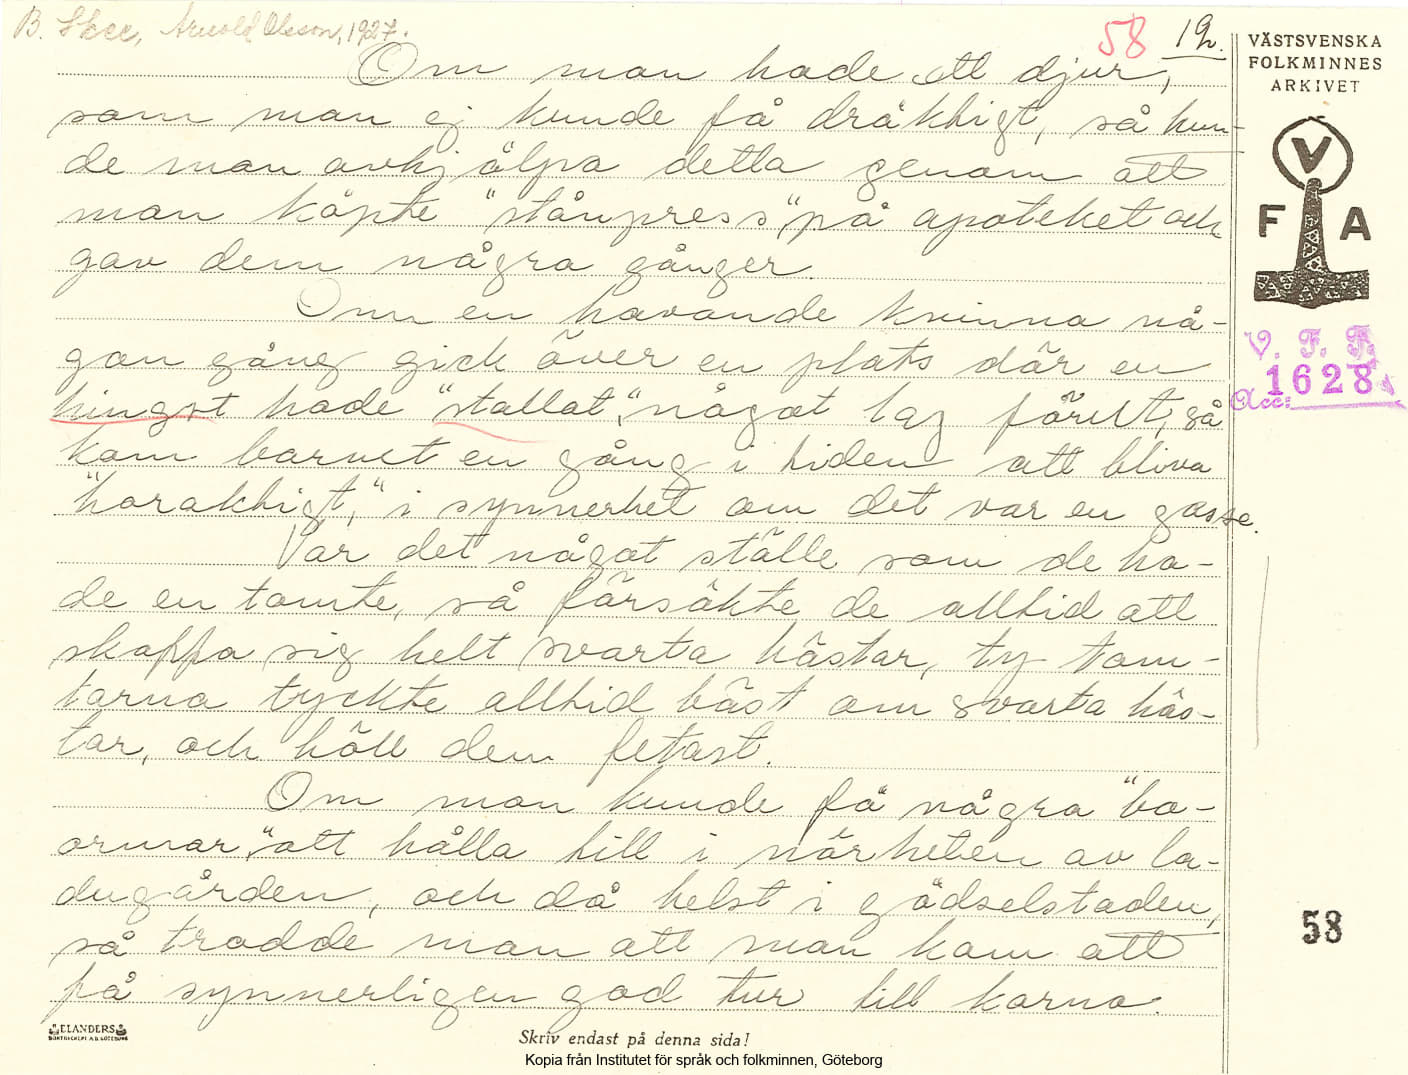 B. Skee, Arnold Olsson, 1927.
58 12.
VÄSTSVENSKA
FOLKMINNES
ARKIVET
V
F A
V. F. F.
1628
Acc:
Om man hade ett djur,
som man ej kunde få dräktigt, så kun-
de man avhjälpa detta genom att
man köpte "stånpress", på apoteket och
gav dem några gånger.
Om en havande kvinna nå-
gon gång gick över en plats där en
hingst hade "stallat", något tag förut, så
kom barnet en gång i tiden att bliva
"horaktigt," i synnerhet om det var en gosse.
Var det något ställe som de ha-
de en tomte, så försökte de alltid att
skaffa sig helt svarta hästar, ty tom-
tarna tyckte alltid bäst om svarta häs-
tar, och höll dem fetast.
Om man kunde få några "bo-
ormar", att hålla till i närheten av la-
dugården, och då helst i gödselstaden,
så trodde man att man kom att
få synnerligen god tur till korna.
58
ELANDERS
BOKTRYCKERI A.B. GÖTEBORG
Skriv endast på denna sida!
Kopia från Institutet för språk och folkminnen, Göteborg